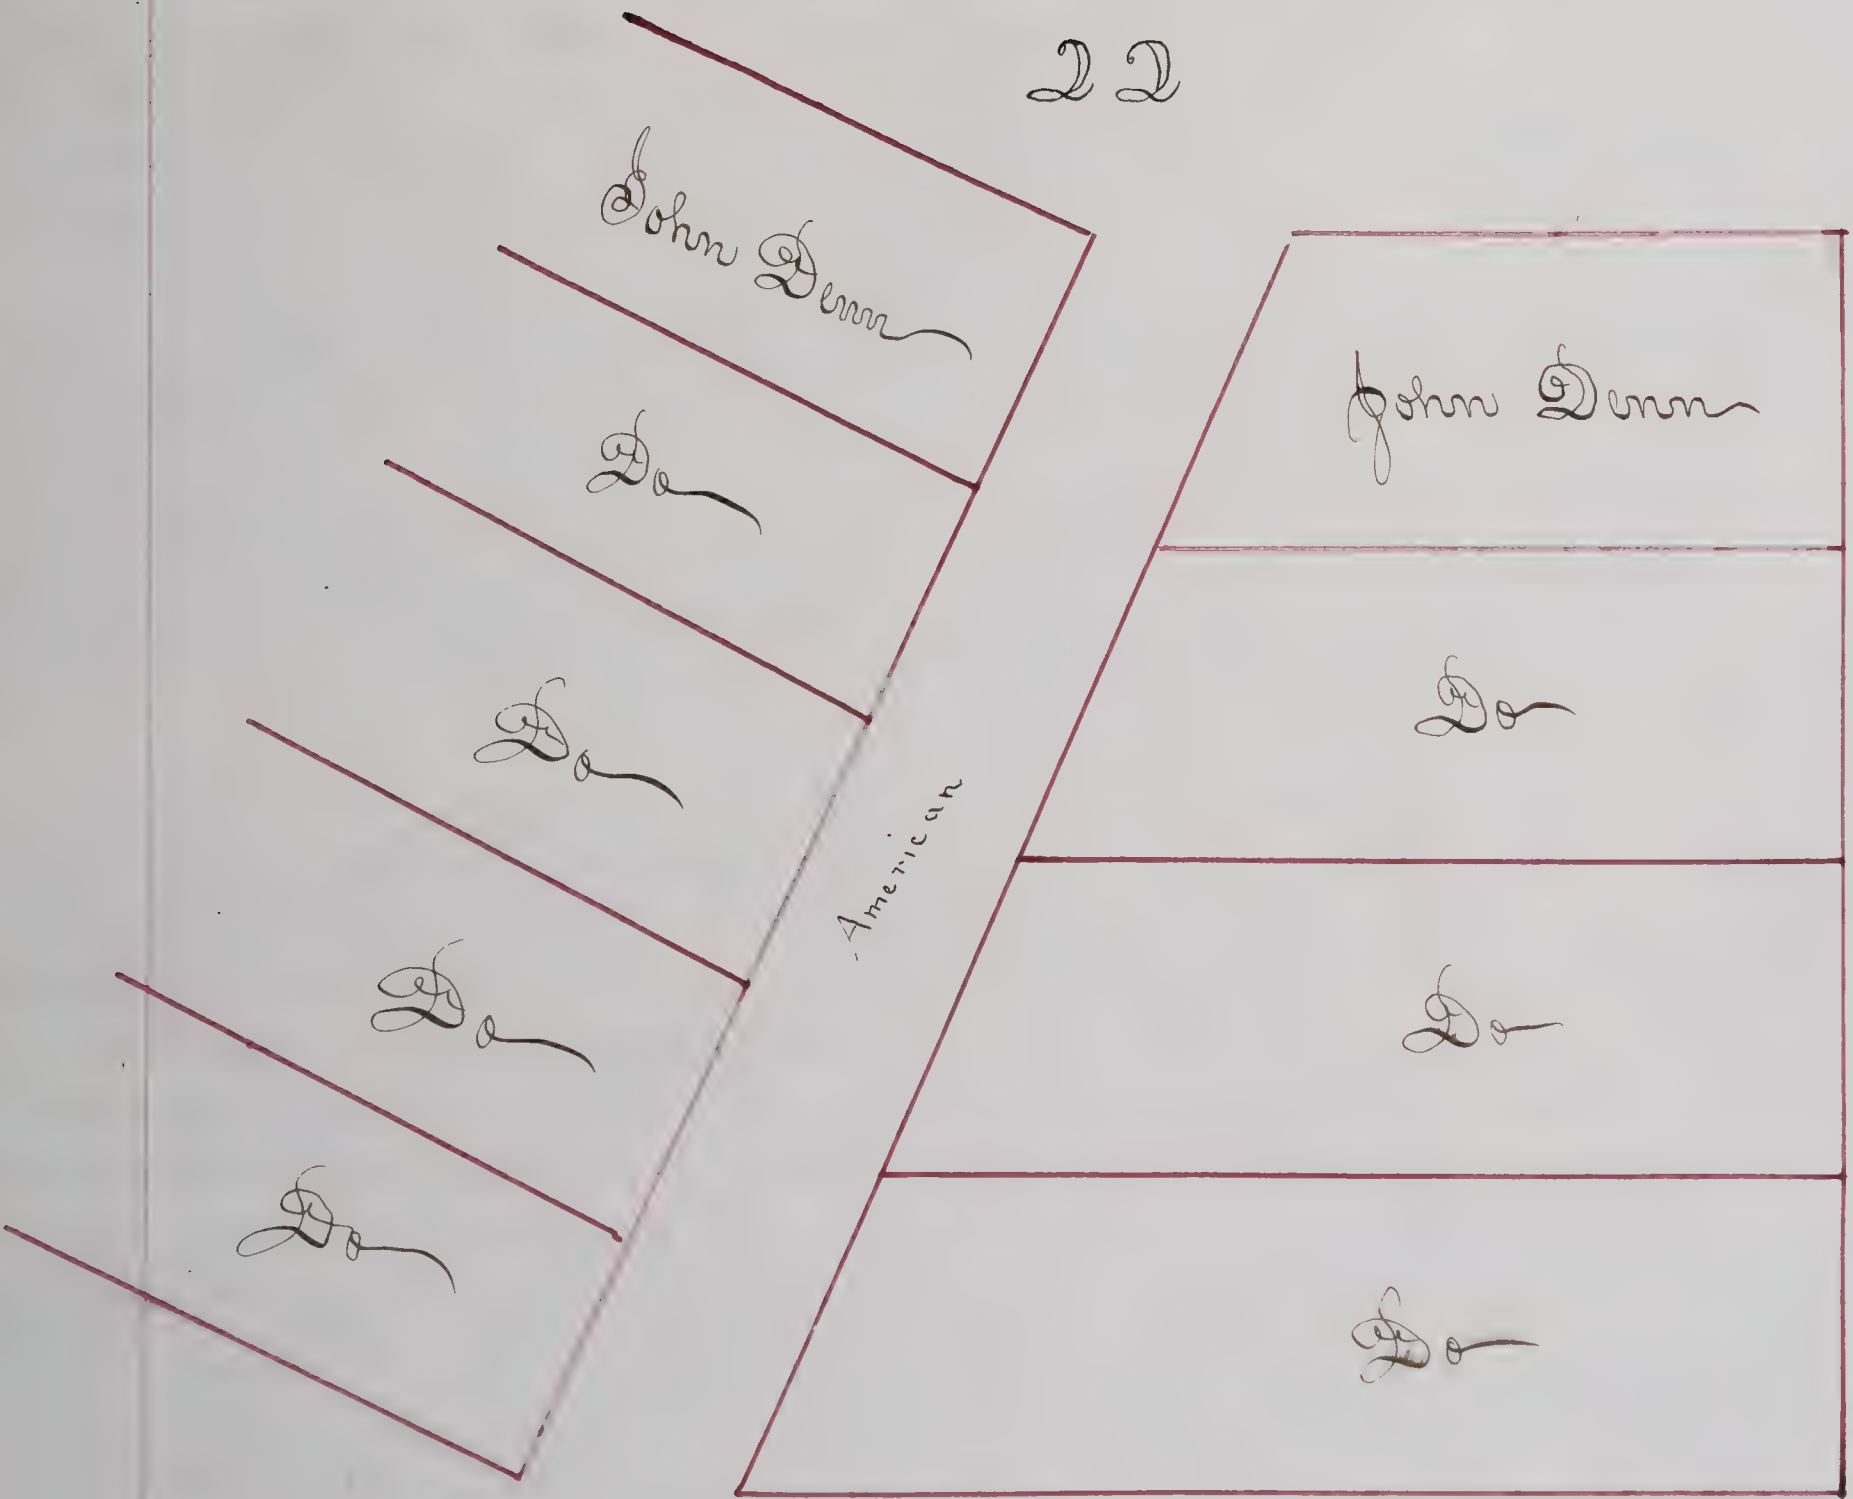 22
John Denn
Do
Do
Do
Do
American
John Denn
Do
Do
Do